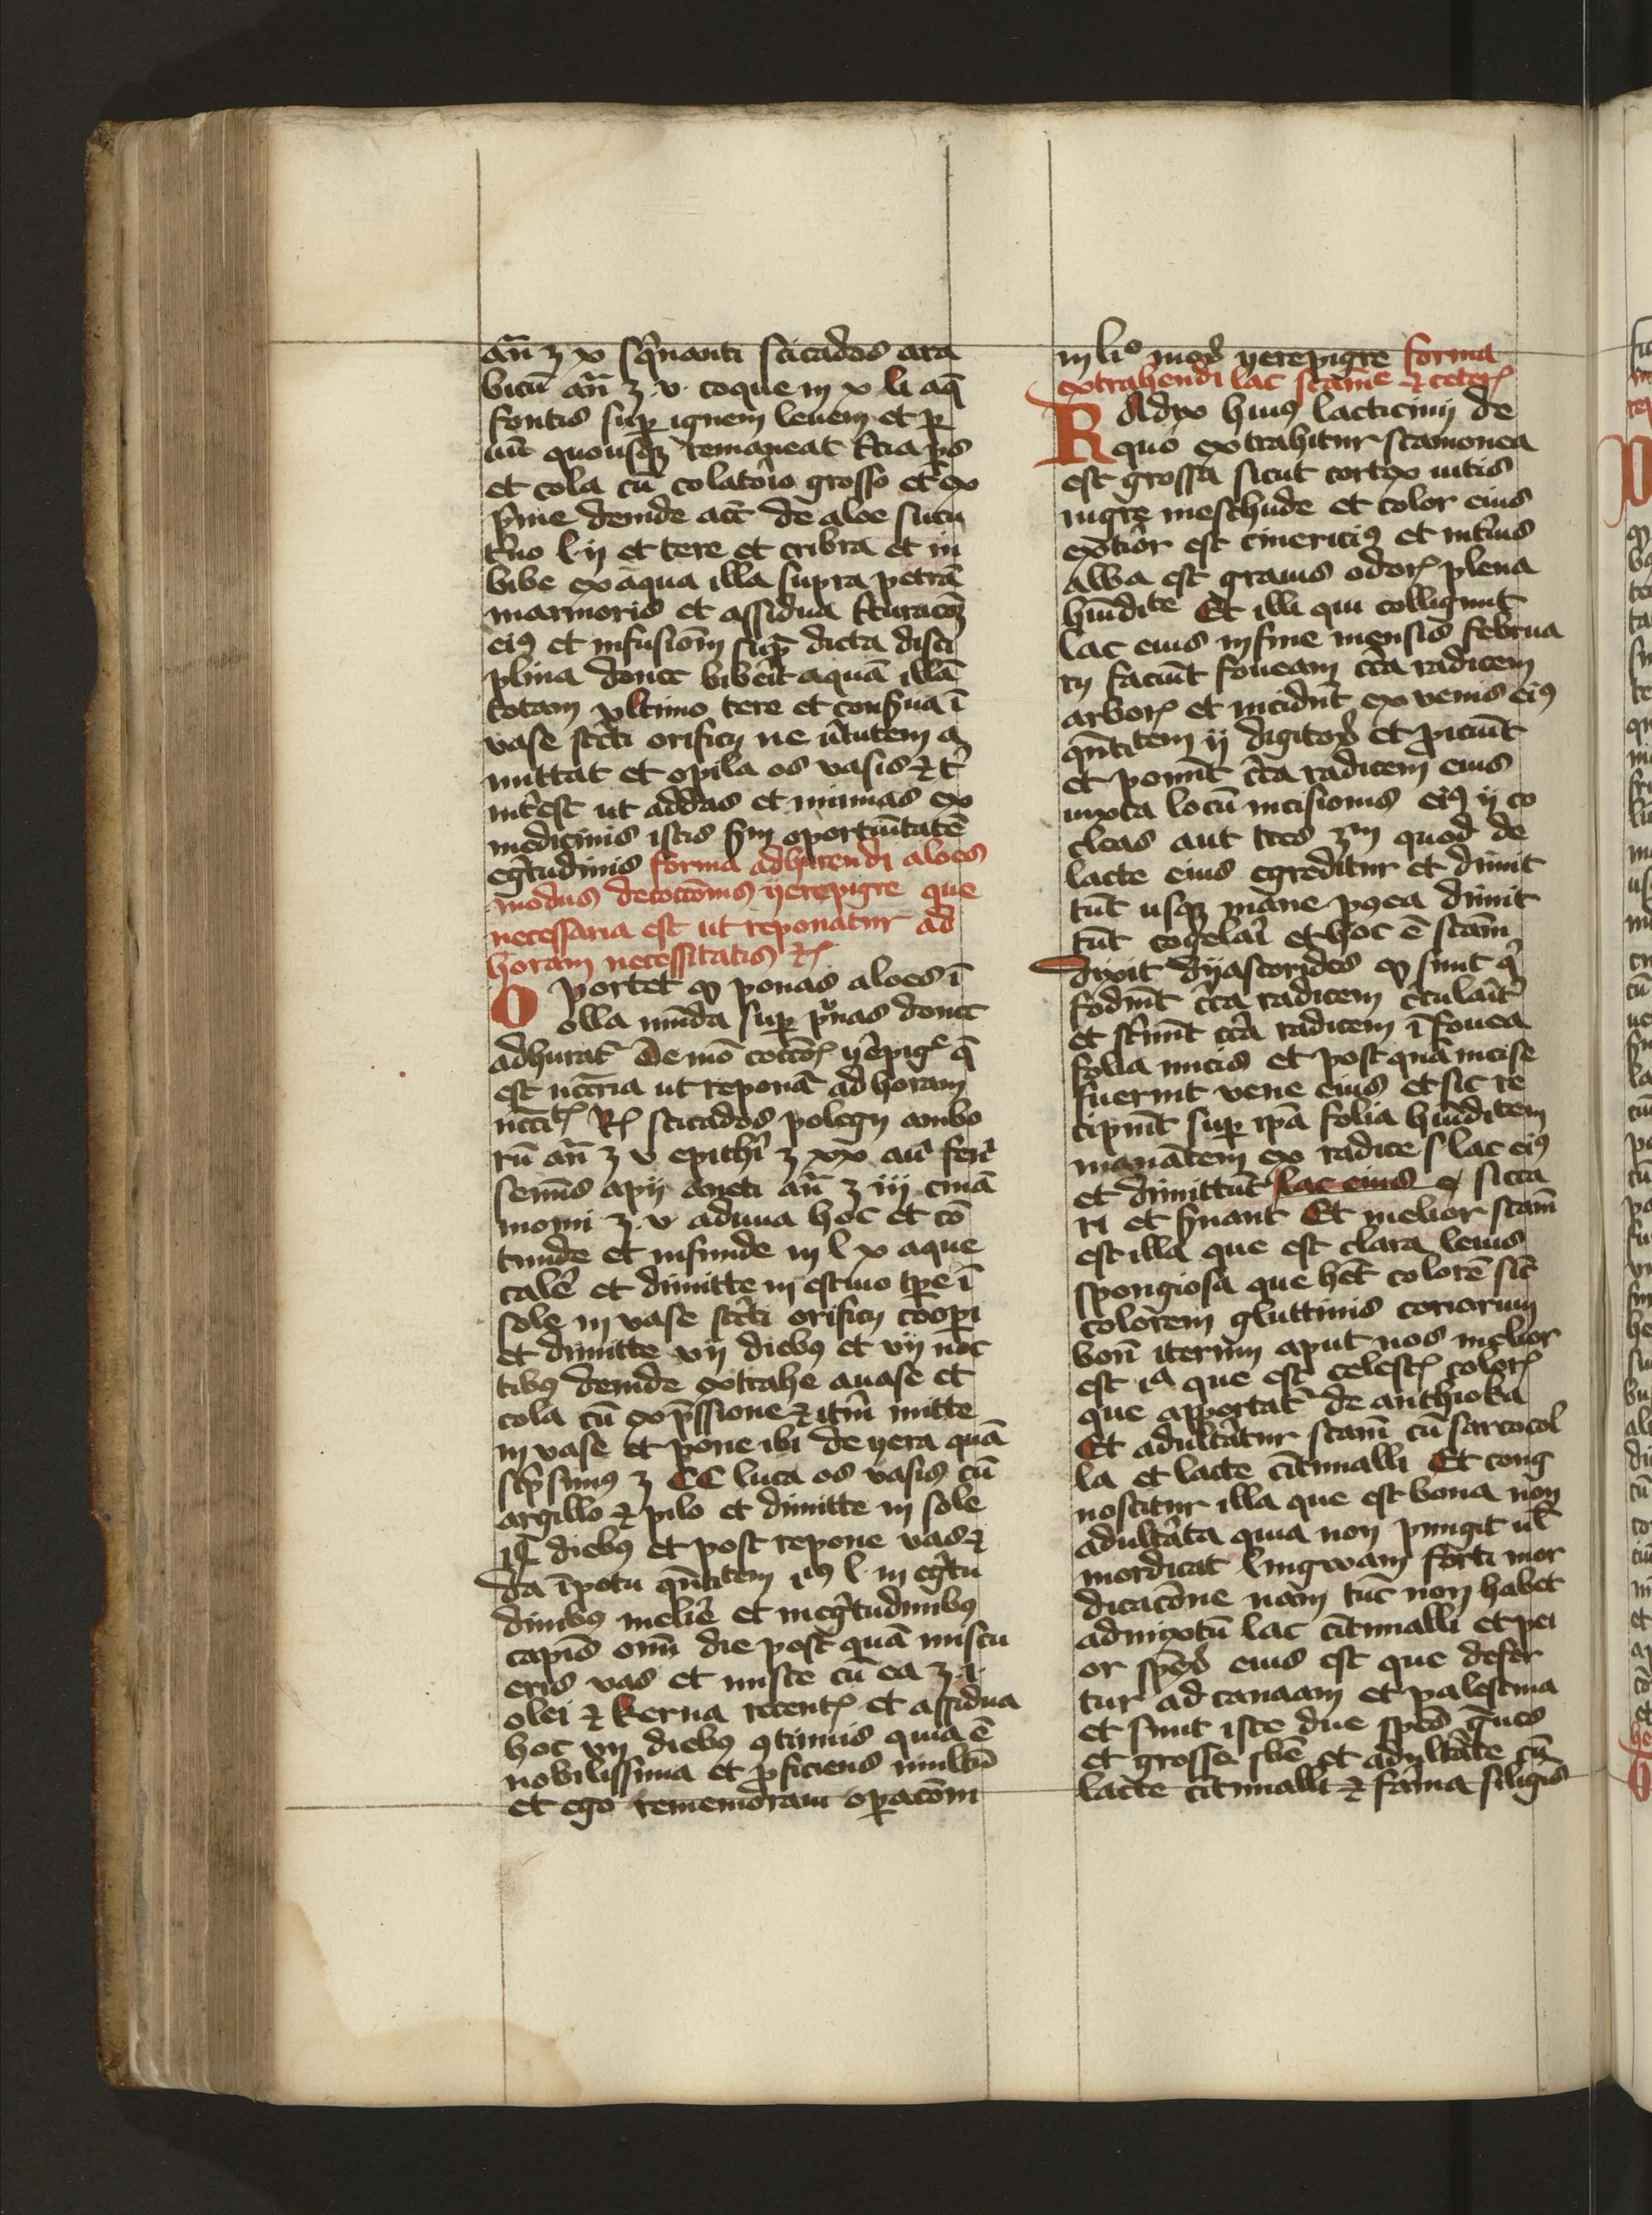 an̄ ʒ x sq̇nanti sticados ara
bicū an̄ ʒ v coque in x li aq̄
fontis sup ignem levem et p
uū quousqꝫ remaneat t̄cia ps
et cola cū colatorio grosso et ex
p̄me deinde acc̄ de aloe sucu
t̄no l ij et tere et cribra et in
bibe ex aqua illa supra petrā
marmoris et assidua t̄turacoꝫ
eiꝰ et infusiōm sup̄ dicta disci
plina donec biberit aquā illā
totam vltimo tere et conſ̄ua ī
vase st̄cti orificij ne v̄tutem a
mittat et opila os vasis ⁊ t̄
int̄est ut addas et minuas ex
medicinis istis ẜm oportūitatē
eḡtudinis forma adhurendi aloes
modus decoctōnis yerepigre que
necessaria est ut reponatur ad
horam necessitatis ⁊ꝝ
Oportet ꝙ ponas aloes ī
olla mūda sup p̄nas donec
adhurat̄ De mō coctōꝝ yēpigͤ q̄
est nc̄cria ut reponat̄ ad horam
nccītꝭ Rꝭ sticados polegij ambo
rū an̄ ʒ v epithī ʒ xx anī fen̄
semīs apij aneti an̄ ʒ iij cinā
momi ʒ v aduna hoc et cō
tunde et infunde in l x aque
calē et dimitte in estiuo tp̄e ī
sole in vase st̄cti orificij coopi
et dimitte vij diebꝰ et vij noc
tibꝰ deinde extrahe a vase et
cola cū exp̄ssione ⁊ it̄m mitte
in vase et pone ibi de yera quā
scp̄simꝰ ʒ CC luta os vasis cū
argillo ⁊ pilo et dimitte in sole
xl diebꝰ et post repone vas ⁊
da ī potu q̄ntitem iꝰ l in eḡtu
dinibꝰ meliē et in eḡtudinibꝰ
capis om̄ die post quā miscu
eris vas et misce cū ea ʒ i
olei ⁊ kerua recentꝭ et assidua
hoc vij diebꝰ ꝯtinuis quia ē
nobilissima et p̄ficiens multū
et ego rememoraui opacōm
in liº mod yerepigre forma
extrahendi lac scam̄e ⁊ ceterꝭ
RAdix huiꝰ lacticinij de
quo extrahitur scamonea
est grossa sicut cortex uitis
nigre meschude et color eius
ext̄ior est cinericiꝰ et int̄ius
alba est grauis odorꝭ plena
hūidite Et illi qui colligunt
lac eius in fine mensis februa
rij faciūt foueam cc̄a radicem
arborꝭ et incidūt ex venis eiꝰ
q̄ntitem ij digitoꝝ et piciūt
et ponūt cc̄a radicem eius
iuxta locū incisionis eiꝰ ij co
cleas aut tres ẜm quod de
lacte eius egreditur et dimit
tūt usqꝫ mane postea dimit
tūt cogelai et hoc ē scam̄
dixit dyascorides ꝙ sunt q̄
fodiūt cc̄a radicem c̄culaīt̄
et st̄nūt cc̄a radicem ī fouea
folia nucis et post quā incise
fuerint vene eius et sic re
cipiūt sup ipa folia hūiditem
manātem ex radice s lac eiꝰ
et dimittūt lac eius sicca
ri et ẜuant Et melior scam̄
est illa que est clara leuis
spongiosa que het̄ colorē sic̄
colorem gluttinis coriorum
bon̄ iterum aput nos melior
est ia que est celestꝭ colorꝭ
que apportat̄ de anthiokia
Et adultatur scam̄ cū sarcocol
la et lacte titimalli Et cong
noscitur illa que est bona non
adultata quia non pungit ul̄
mordicat lingwam forti mor
dicacōne nam tuc̄ non habet
admixtū lac titimalli et pei
or sp̄es eius est que defer
tur ad canaam et palestina
et sunt iste due sp̄es ḡues
et grosse sb̄e et adultate cū
lacte titimalli ⁊ farīna siliginis